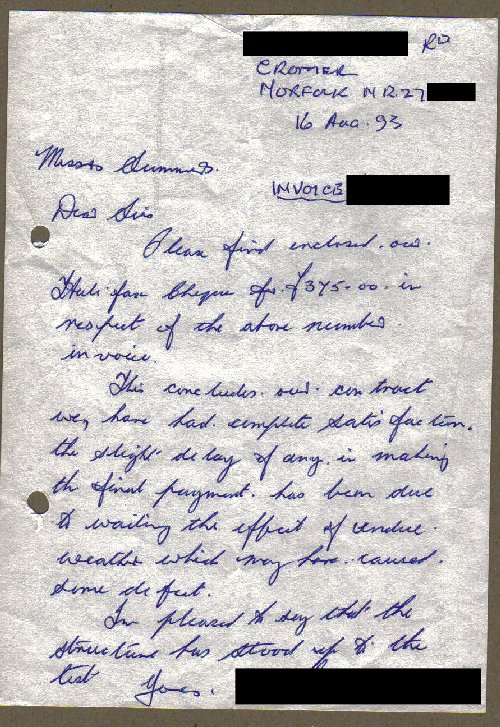 RD
CROMER
NORFOLK NR27
16 AUG. 93
Messrs Summers.
INVOICE
Dear Sirs
Please find enclosed. our.
Halifax Cheque for. £375-00. in
respect of the above number.
invoice.
This concludes. our. contract
we, have had. complete satisfaction.
the slight delay if any. in making
the final payment. has been due
to waiting the effect of undue.
weather which may have. caused.
some defect.
I'm pleased to say that the
structure has stood up to the
test Yours.